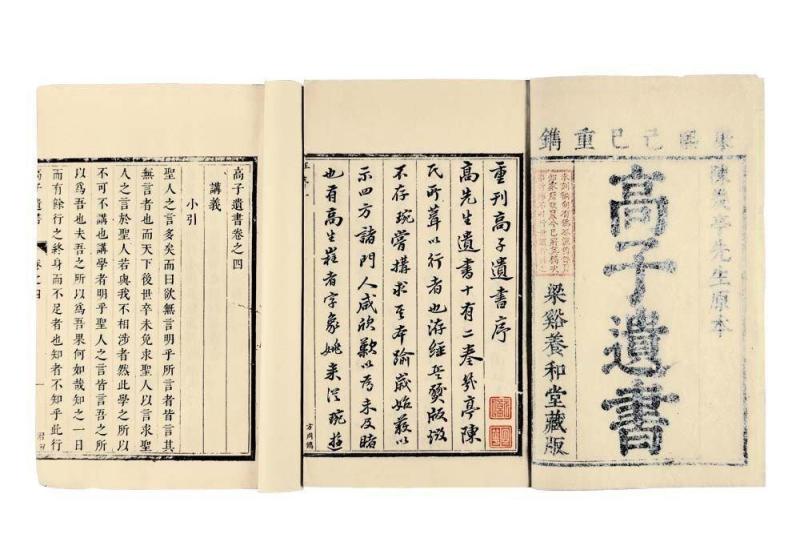 康熙己巳重鐫
陳幾亭先生原本
高子遺書
梁谿養和堂藏版
重刊高子遺書序
高先生遺書十有二卷幾亭陳
氏所葺以行者也游經兵燹版燬
不存琬嘗搆求其本踰歲始獲以
示四方諸門人咸欣歎以為未及睹
也有高生者字象姚來從琬遊
高子遺書卷之四
講義
小引
聖人之言多矣而曰欲無言明乎所言者皆言其
無言者也而天下後世卒未免求聖人以言求聖
人之言於聖人若與我不相涉者然此學之所以
不可不講也講學者明乎聖人之言皆言吾之所
以爲吾也夫吾之所以爲吾果何如哉知之一日
而有餘行之終身而不足者也知者不知乎此行
高子遺書 卷之四 一